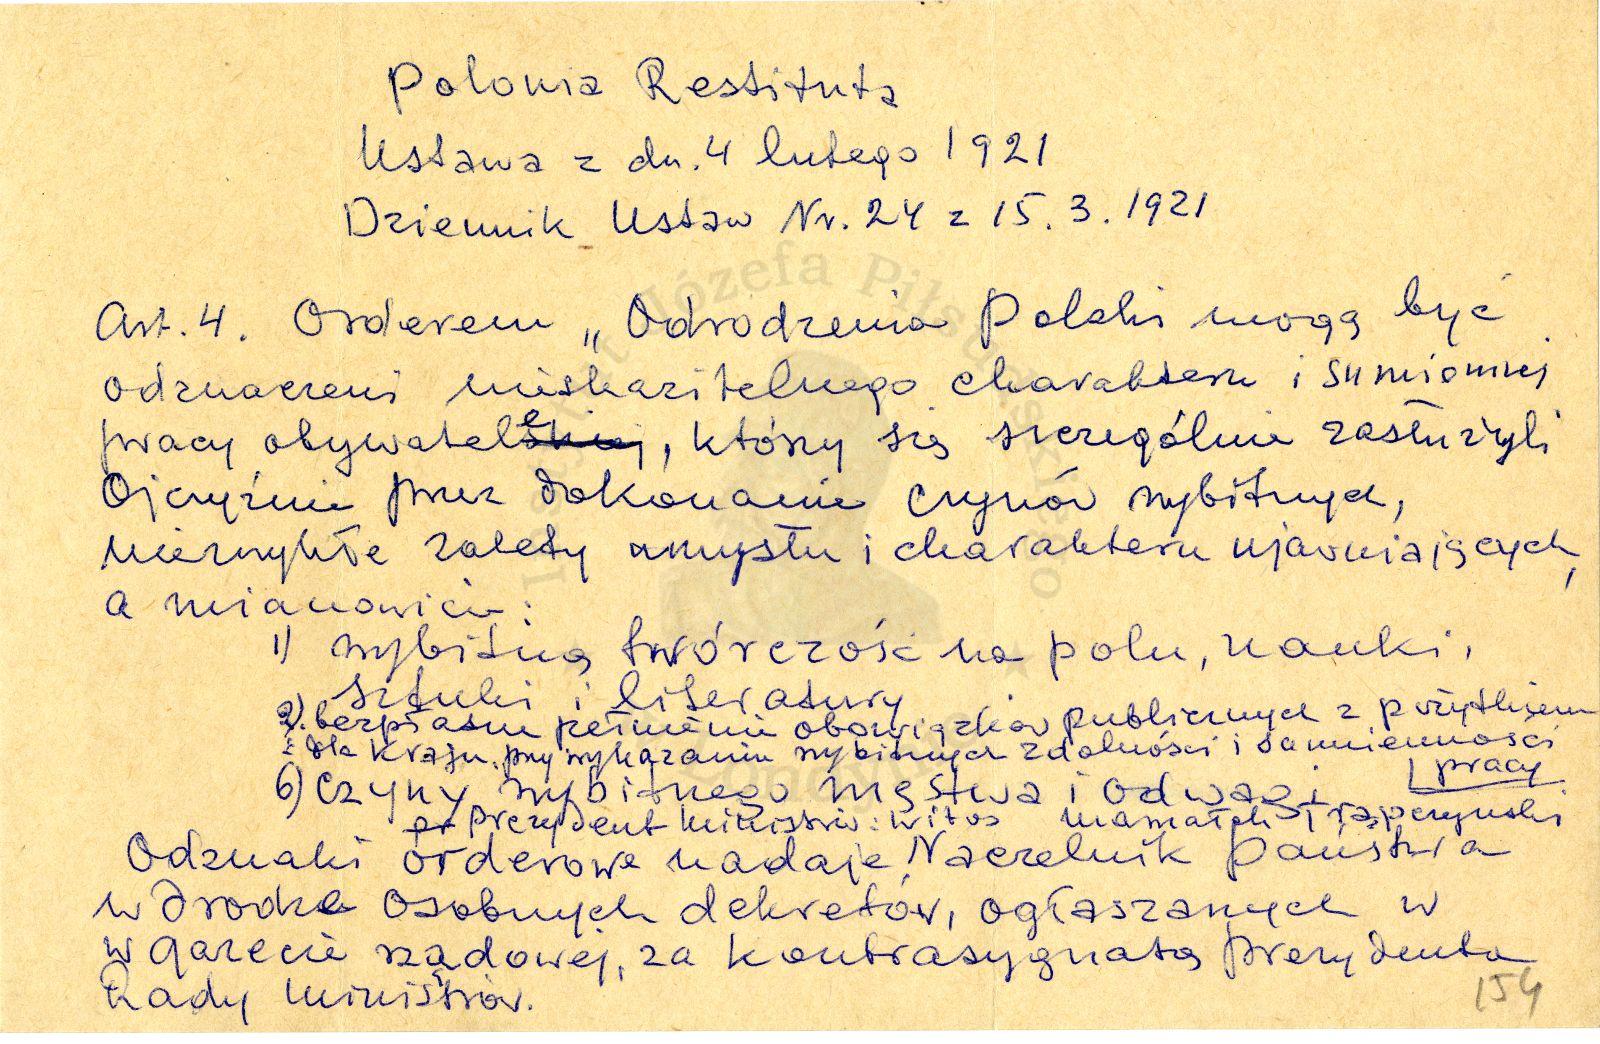 Polonia Restituta
Ustawa z dn. 4 lutego 1921
Dziennik Ustaw Nr. 24 z 15.3.1921
Art. 4. Orderem „Odrodzenia Polski mogą być
odznaczeni nieskazitelnego charakteru i sumiennej
pracy obywatele, którzy się szczególnie zasłużyli
Ojczyźnie przez dokonanie czynów wybitnych,
niezwykłe zalety umysłu i charakteru ujawniających,
a mianowicie:
1) wybitną twórczość na polu, nauki,
sztuki i literatury
2). bezpłatne pełnienie obowiązków publicznych z pożytkiem
dla kraju, przy wykazaniu wybitnych zdolności i sumienności
pracy
6) Czyny wybitnego męstwa i odwagi
Prezydent Ministrów: Witos Marszałek Trąmpczyński
Odznaki orderowe nadaje Naczelnik Państwa
w drodze osobnych dekretów, ogłaszanych w
w gazecie rządowej, za kontrasygnatą prezydenta
Rady Ministrów.
154
Instytut Józefa Piłsudskiego